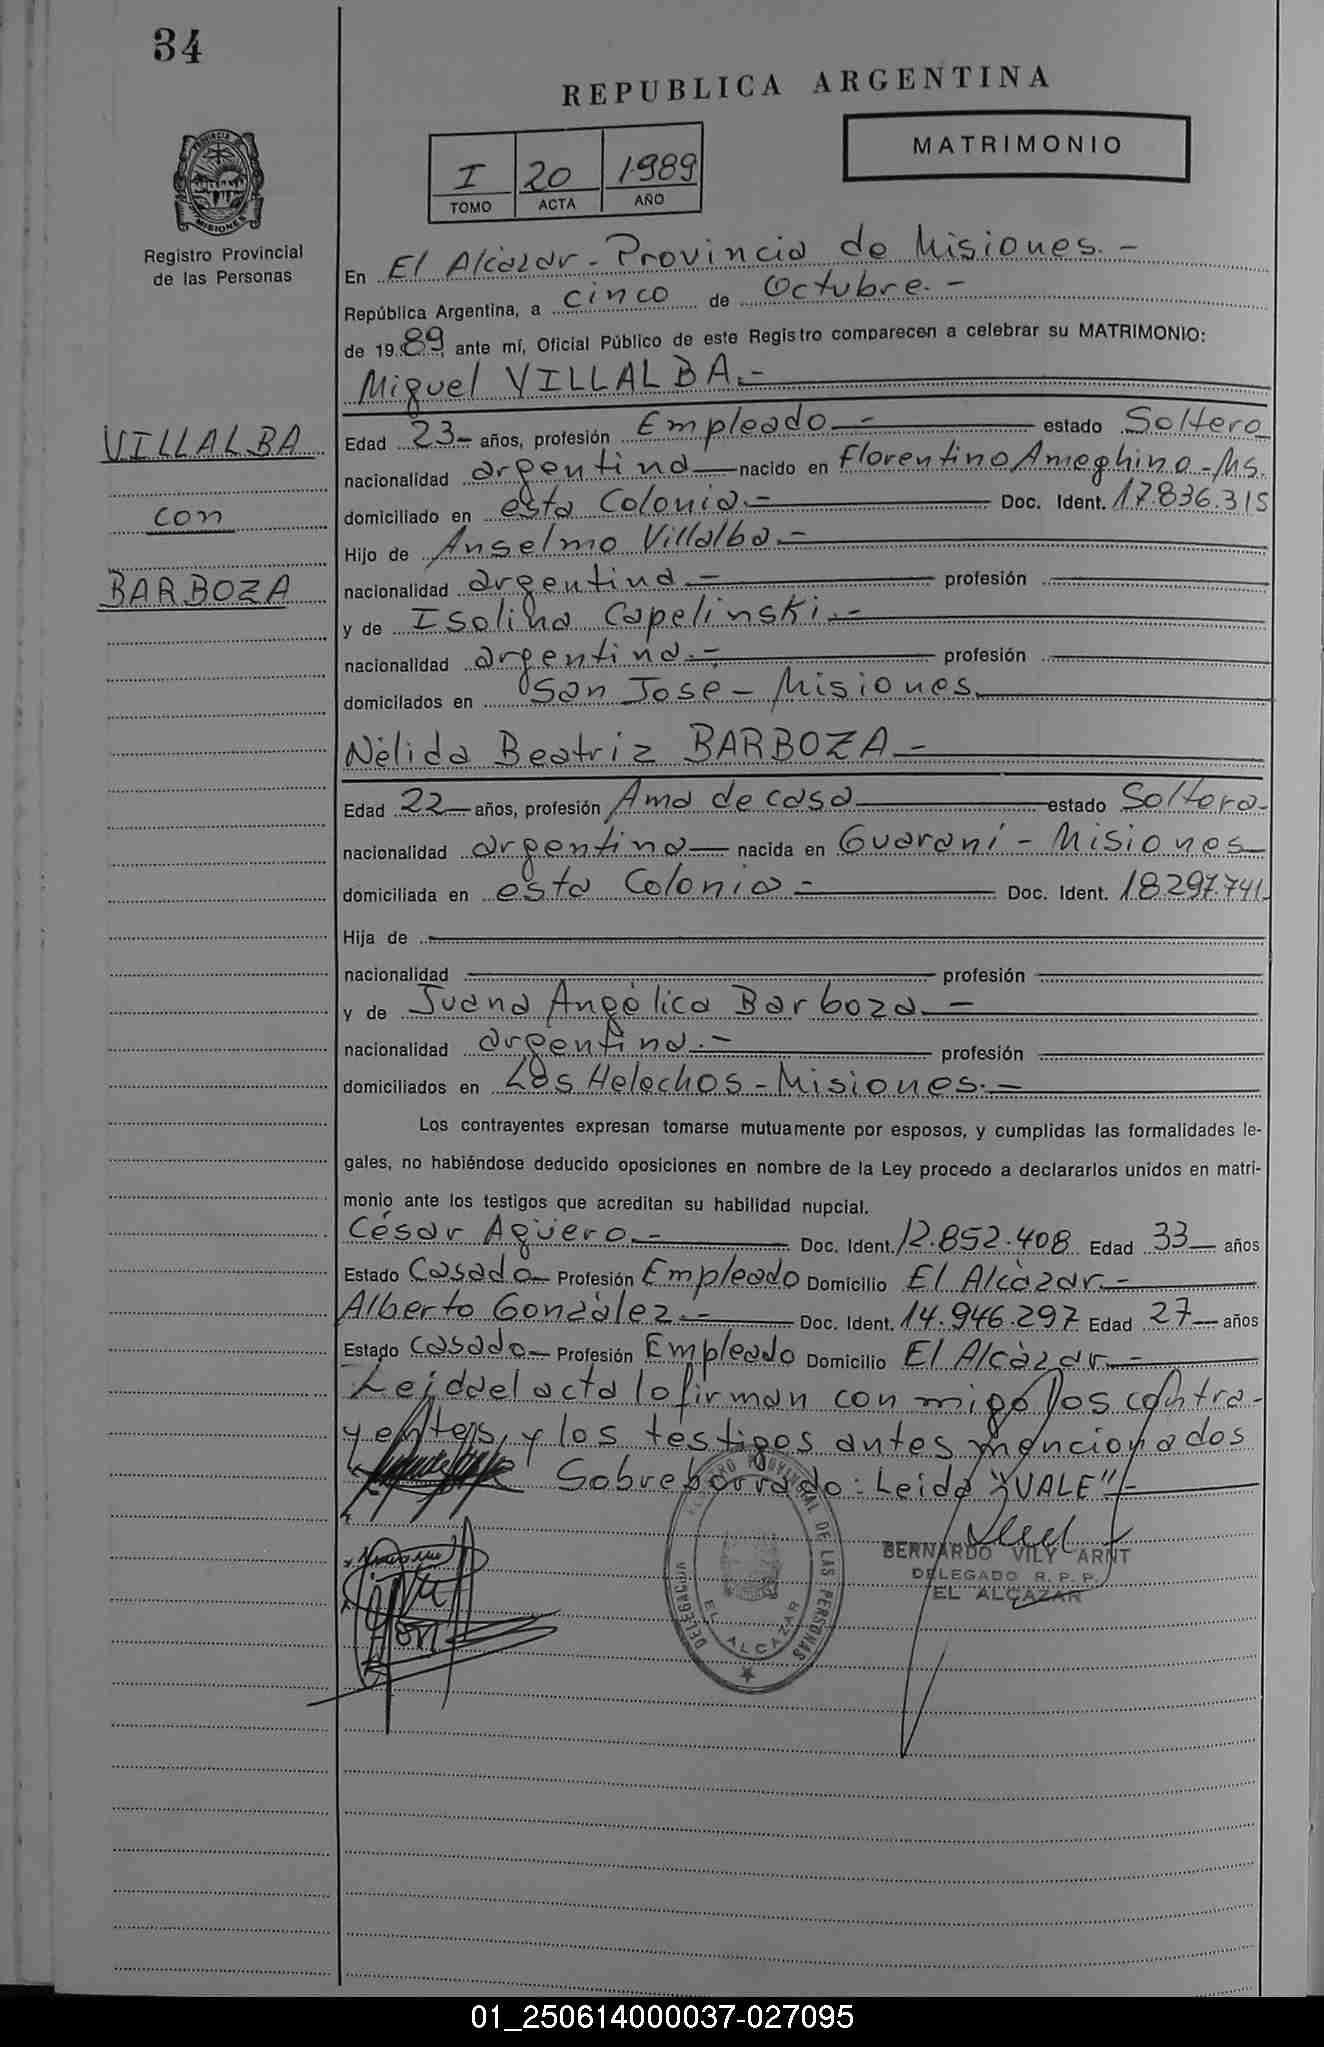 34
REPUBLICA ARGENTINA
MATRIMONIO
I 20 1989
TOMO ACTA AÑO
PROVINCIA
MISIONES
Registro Provincial
de las Personas
En El Alcàzar - Provincia de Misiones. -
República Argentina, a cinco de Octubre. -
de 1989, ante mí, Oficial Público de este Registro comparecen a celebrar su MATRIMONIO:
Miguel VILLALBA. -
VILLALBA
con
BARBOZA
Edad 23 - años, profesión Empleado - estado Soltero
nacionalidad argentina nacido en Florentino Ameghino - Ms.
domiciliado en esta Colonia. - Doc. Ident. 17.836.315
Hijo de Anselmo Villalba. -
nacionalidad argentina. - profesión
y de Isolina Capelinski. -
nacionalidad argentina. - profesión
domicilados en San José - Misiones.
Nélida Beatriz BARBOZA. -
Edad 22 años, profesión Ama de casa estado Soltera -
nacionalidad argentina nacida en Guaraní - Misiones
domiciliada en esta Colonia - Doc. Ident. 18.297.741
Hija de
nacionalidad profesión
y de Juana Angélica Barboza. -
nacionalidad argentina. - profesión
domiciliados en Los Helechos - Misiones. -
Los contrayentes expresan tomarse mutuamente por esposos, y cumplidas las formalidades le-
gales, no habiéndose deducido oposiciones en nombre de la Ley procedo a declararlos unidos en matri-
monio ante los testigos que acreditan su habilidad nupcial.
César Agüero. - Doc. Ident. 12.852.408 Edad 33 años
Estado Casado Profesión Empleado Domicilio El Alcàzar. -
Alberto Gonzàlez. - Doc. Ident. 14.946.297 Edad 27 años
Estado Casado Profesión Empleado Domicilio El Alcàzar. -
Leida el acta lo firman con migo los contra-
yentes, y los testigos antes mencionados
Sobreborrado: Leida "VALE" -
BERNARDO VILY ARNT
DELEGADO R. P. P.
EL ALCAZAR
REGISTRO PROVINCIAL DE LAS PERSONAS
DELEGACION
EL ALCAZAR
01_250614000037-027095